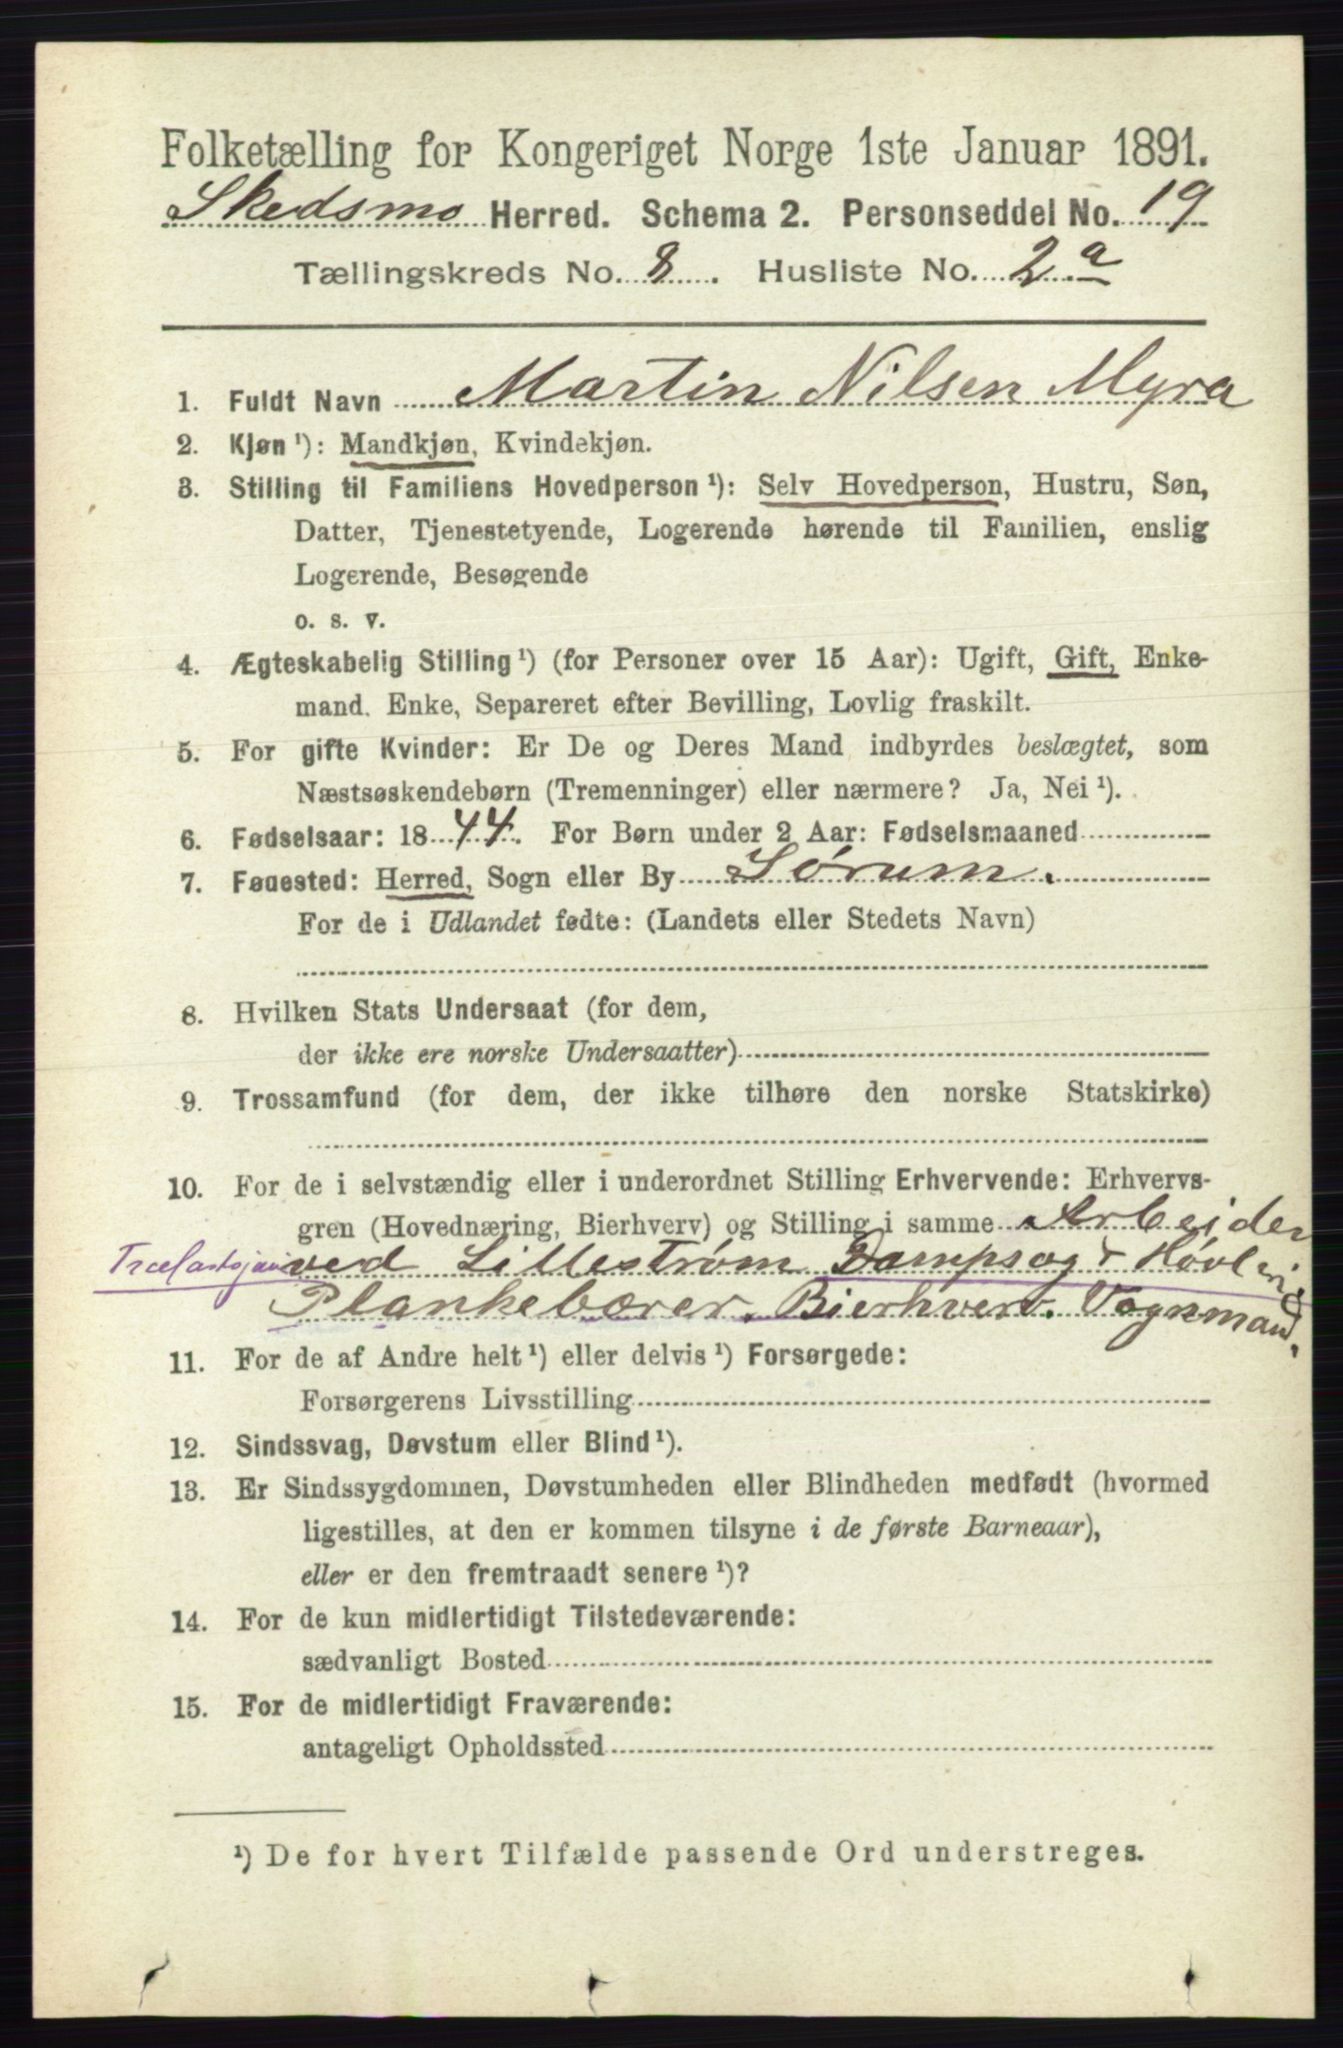 Folketælling for Kongeriget Norge 1ste Januar 1891.
Skedsmo Herred. Schema 2. Personseddel No. 19
Tællingskreds No. 8. Husliste No. 2 a
1. Fuldt Navn Martin Nilsen Myra
2. Kjøn ¹): Mandkjøn, Kvindekjøn.
3. Stilling til Familiens Hovedperson ¹): Selv Hovedperson, Hustru, Søn,
Datter, Tjenestetyende, Logerende hørende til Familien, enslig
Logerende, Besøgende
o. s. v.
4. Ægteskabelig Stilling ¹) (for Personer over 15 Aar): Ugift, Gift, Enke-
mand. Enke, Separeret efter Bevilling, Lovlig fraskilt.
5. For gifte Kvinder: Er De og Deres Mand indbyrdes beslægtet, som
Næstsøskendebørn (Tremenninger) eller nærmere? Ja, Nei ¹).
6. Fødselsaar: 1844. For Børn under 2 Aar: Fødselsmaaned
7. Fødested: Herred, Sogn eller By Sørum.
For de i Udlandet fødte: (Landets eller Stedets Navn)
8. Hvilken Stats Undersaat (for dem,
der ikke ere norske Undersaatter)
9. Trossamfund (for dem, der ikke tilhøre den norske Statskirke)
10. For de i selvstændig eller i underordnet Stilling Erhvervende: Erhvervs-
gren (Hovednæring, Bierhverv) og Stilling i samme Arbeider
ved Lillestrøm Dampsag & Høvleri
Plankebærer. Bierhverv. Vognmand.
11. For de af Andre helt ¹) eller delvis ¹) Forsørgede:
Forsørgerens Livsstilling
12. Sindssvag, Døvstum eller Blind ¹).
13. Er Sindssygdommen, Døvstumheden eller Blindheden medfødt (hvormed
ligestilles, at den er kommen tilsyne i de første Barneaar),
eller er den fremtraadt senere ¹)?
14. For de kun midlertidigt Tilstedeværende:
sædvanligt Bosted
15. For de midlertidigt Fraværende:
antageligt Opholdssted
¹) De for hvert Tilfælde passende Ord understreges.